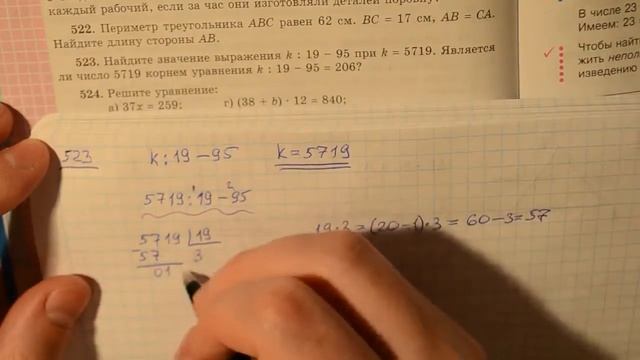 каждый рабочий, если за час они изготовляли деталей поровну?
522. Периметр треугольника ABC равен 62 см. BC = 17 см, AB = CA.
Найдите длину стороны AB.
523. Найдите значение выражения k : 19 – 95 при k = 5719. Является
ли число 5719 корнем уравнения k : 19 – 95 = 206?
524. Решите уравнение:
а) 37x = 259; г) (38 + b) · 12 = 840;
В числе 23
Имеем: 23
Чтобы найт
жить непол
изведению
523 k : 19 – 95 k = 5719
1 2
5719 : 19 – 95
19 · 3 = (20 – 1) · 3 = 60 – 3 = 57
5719 19
– 57 3
01